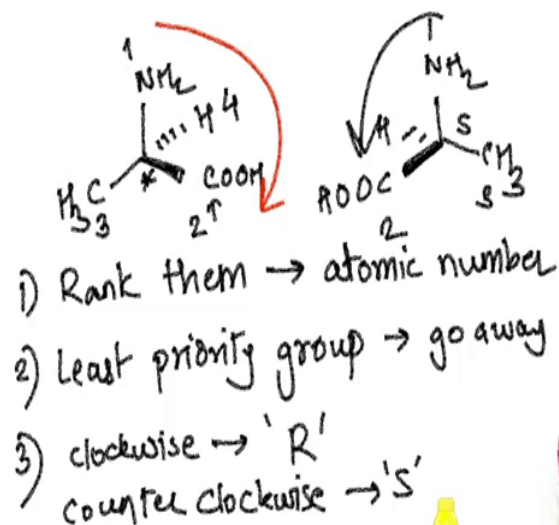 1 NH2 H 4 * COOH H3C 3 2↑
1 NH2 H S CH3 3 HOOC 2
1) Rank them → atomic number
2) Least priority group → go away
3) clockwise → 'R'
counter clockwise → 'S'